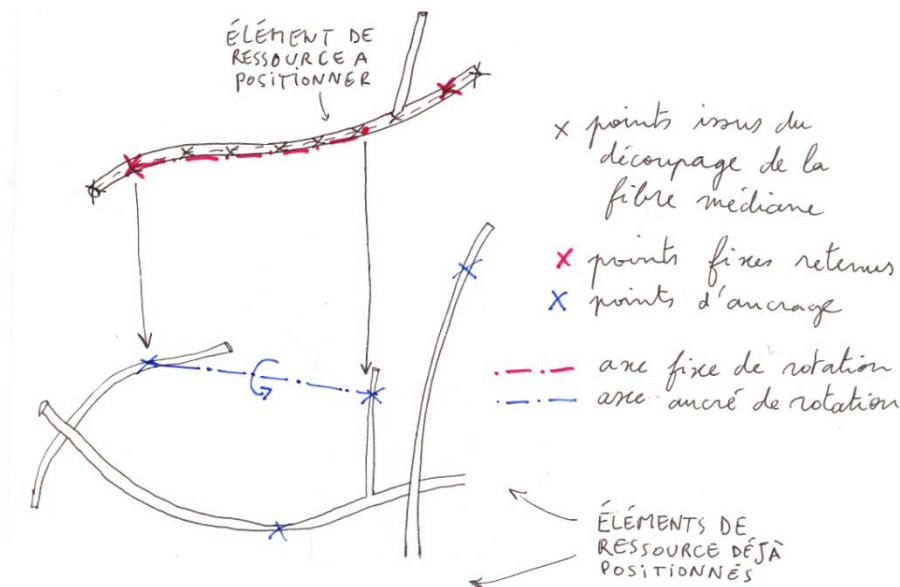 ÉLÉMENT DE
RESSOURCE A
POSITIONNER
x points issus du
découpage de la
fibre médiane
x points fixes retenus
x points d'ancrage
axe fixe de rotation
axe ancré de rotation
ÉLÉMENTS DE
RESSOURCE DÉJÀ
POSITIONNÉS